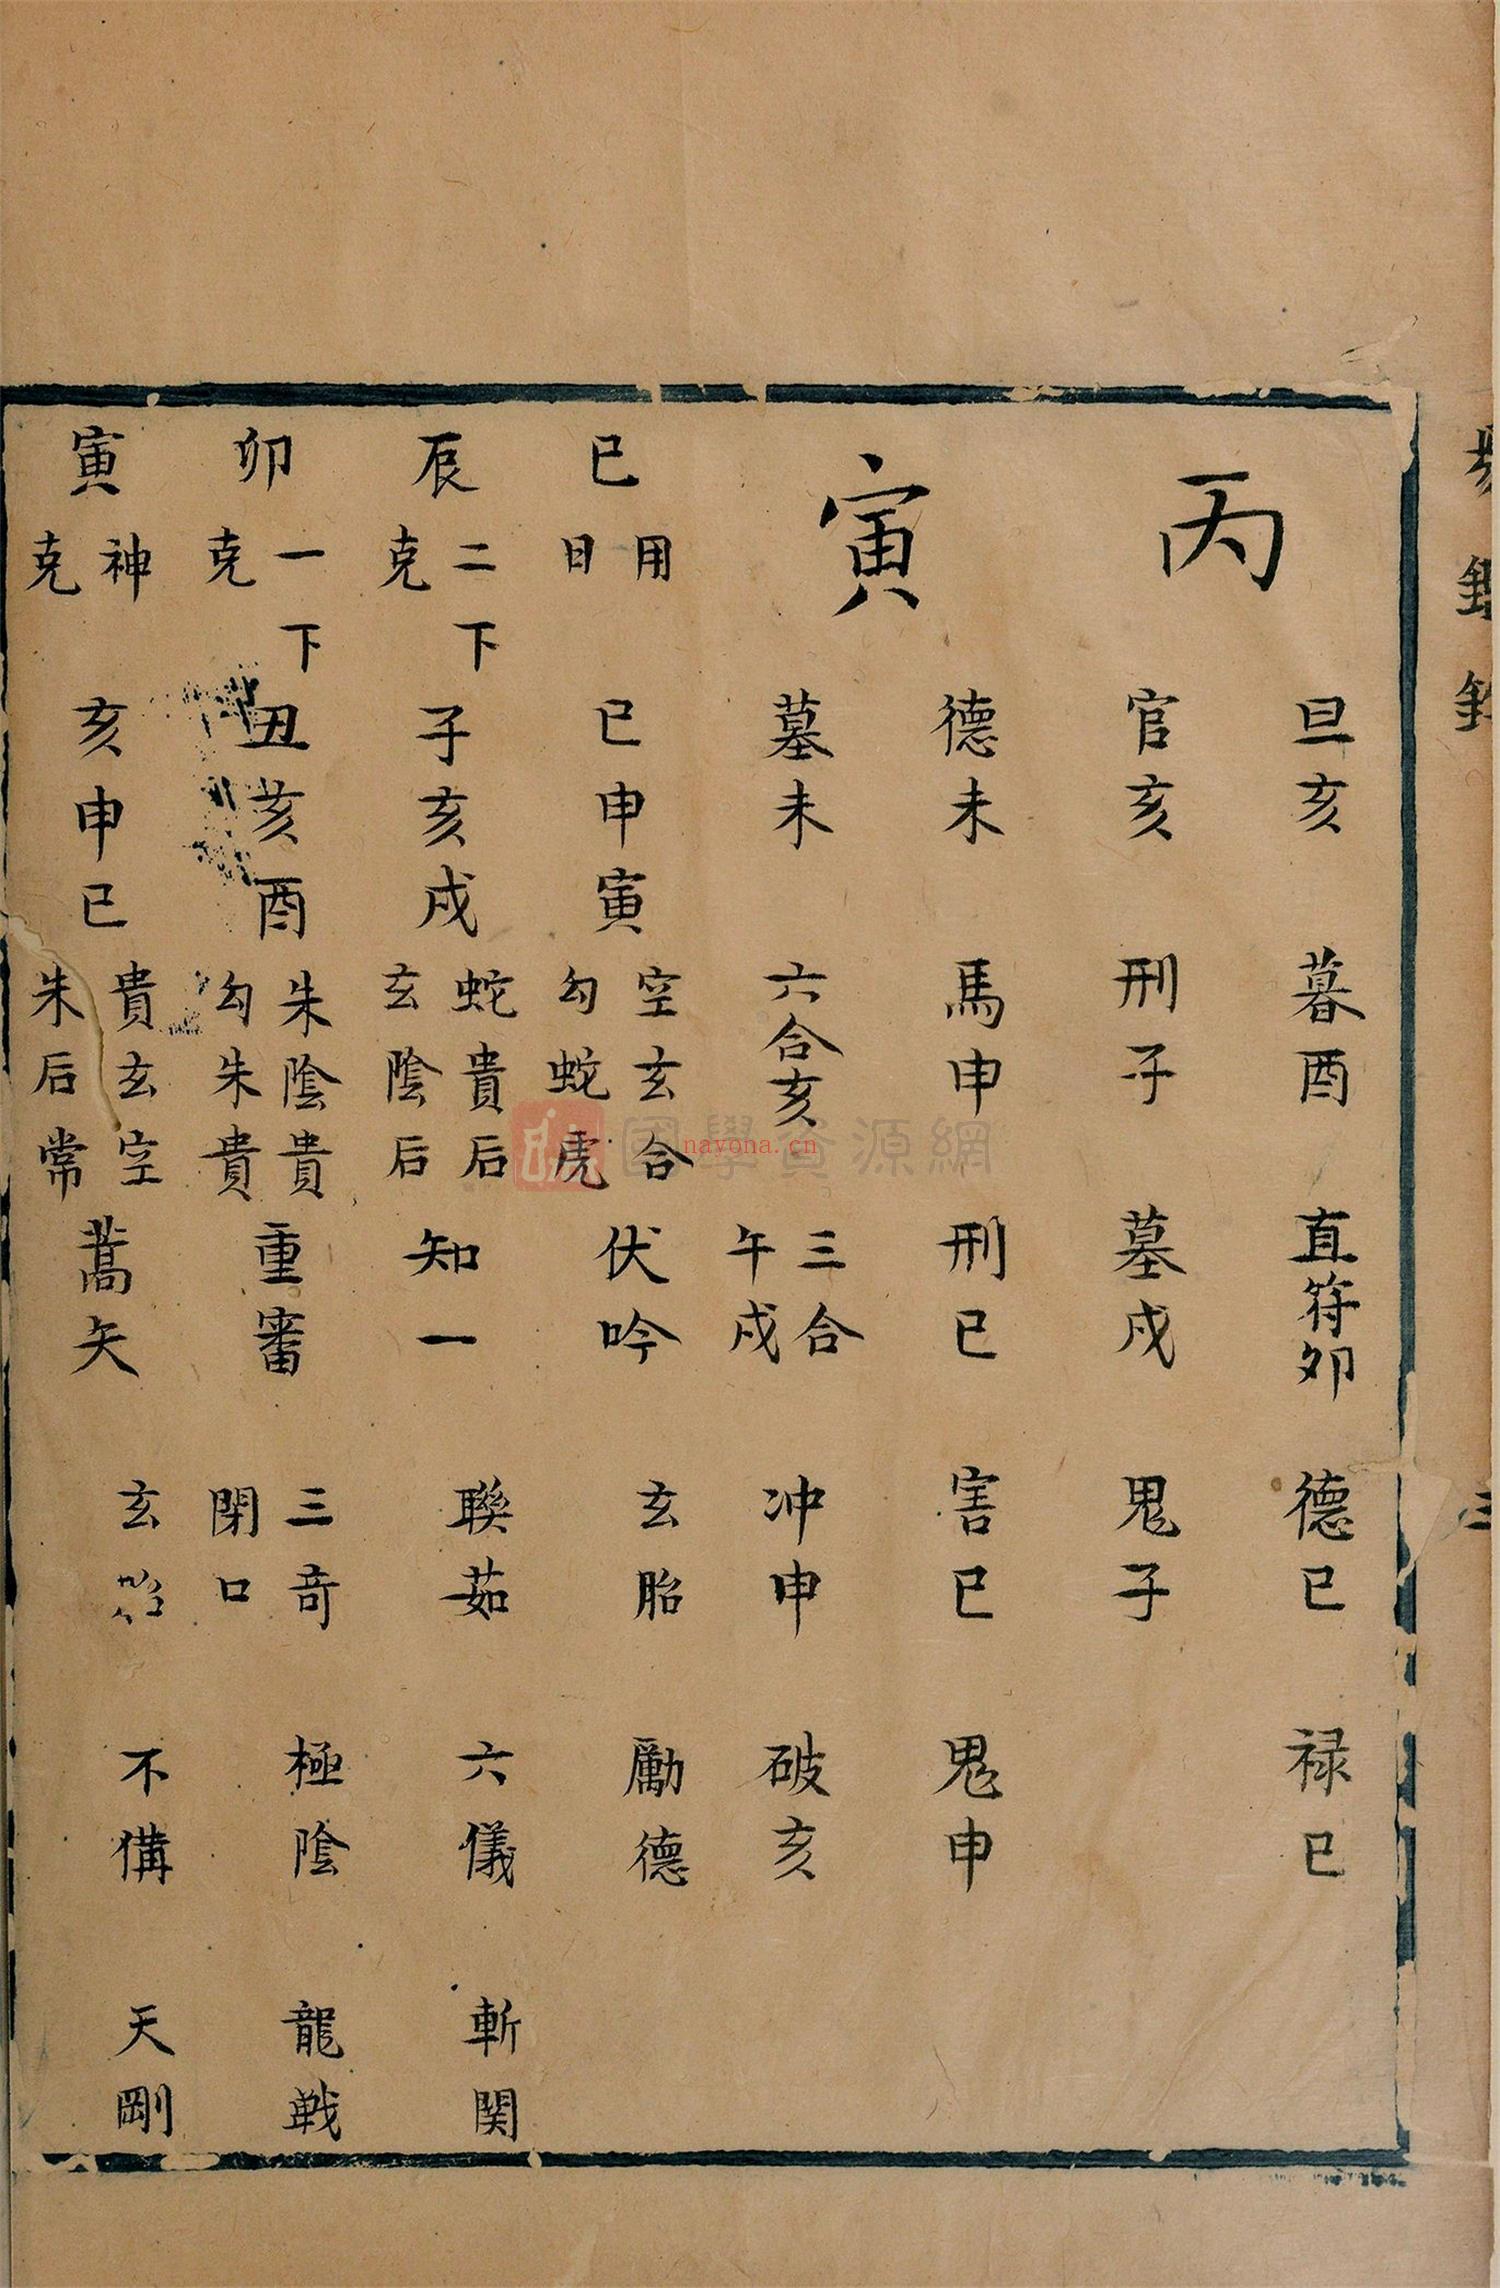 丙
旦亥 暮酉 直符夘 德巳 禄巳
官亥 刑子 墓戌 鬼子
寅
德未 馬申 刑巳 害巳 鬼申
墓未 六合亥 三合午戌 冲申 破亥
巳 用日 巳申寅 空玄合 勾蛇虎 伏吟 玄胎 勵德
辰 二下克 子亥戌 蛇貴后 玄陰后 知一 聯茹 六儀 斬関
卯 一下克 丑亥酉 朱陰貴 勾朱貴 重審 三奇 閉口 極陰 龍戦
寅 神克 亥申巳 貴玄空 朱后常 蒿矢 玄胎 不備 天剛
國學資源網
nayona.cn